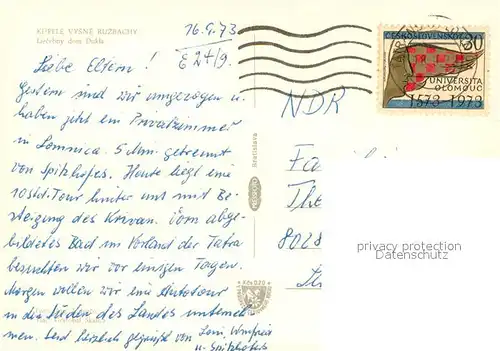 KÚPELE VYŠNÉ RUŽBACHY
Liečebný dom Dukla
16.9.73
E 24/9.
ČESKOSLOVENSKO
30
UNIVERSITA
OLOMOUC
1573-1973
Liebe Eltern!
Gestern sind wir umgezogen u.
haben jetzt ein Privatzimmer
in Lomnica. 5 Min. getrennt
von Spitzhofers. Heute liegt eine
10 Std. Tour hinter uns mit Be-
steigung des Krivan. Vom abge-
bildeten Bad im Vorland der Tatra
besuchten wir vor einigen Tagen.
Morgen wollen wir eine Autotour
in die Süden des Landes unterneh-
men. Seid herzlich gegrüßt von
u. Spitzhofers
NDR
Bratislava
Fa
The
8028
privacy protection
Datenschutz